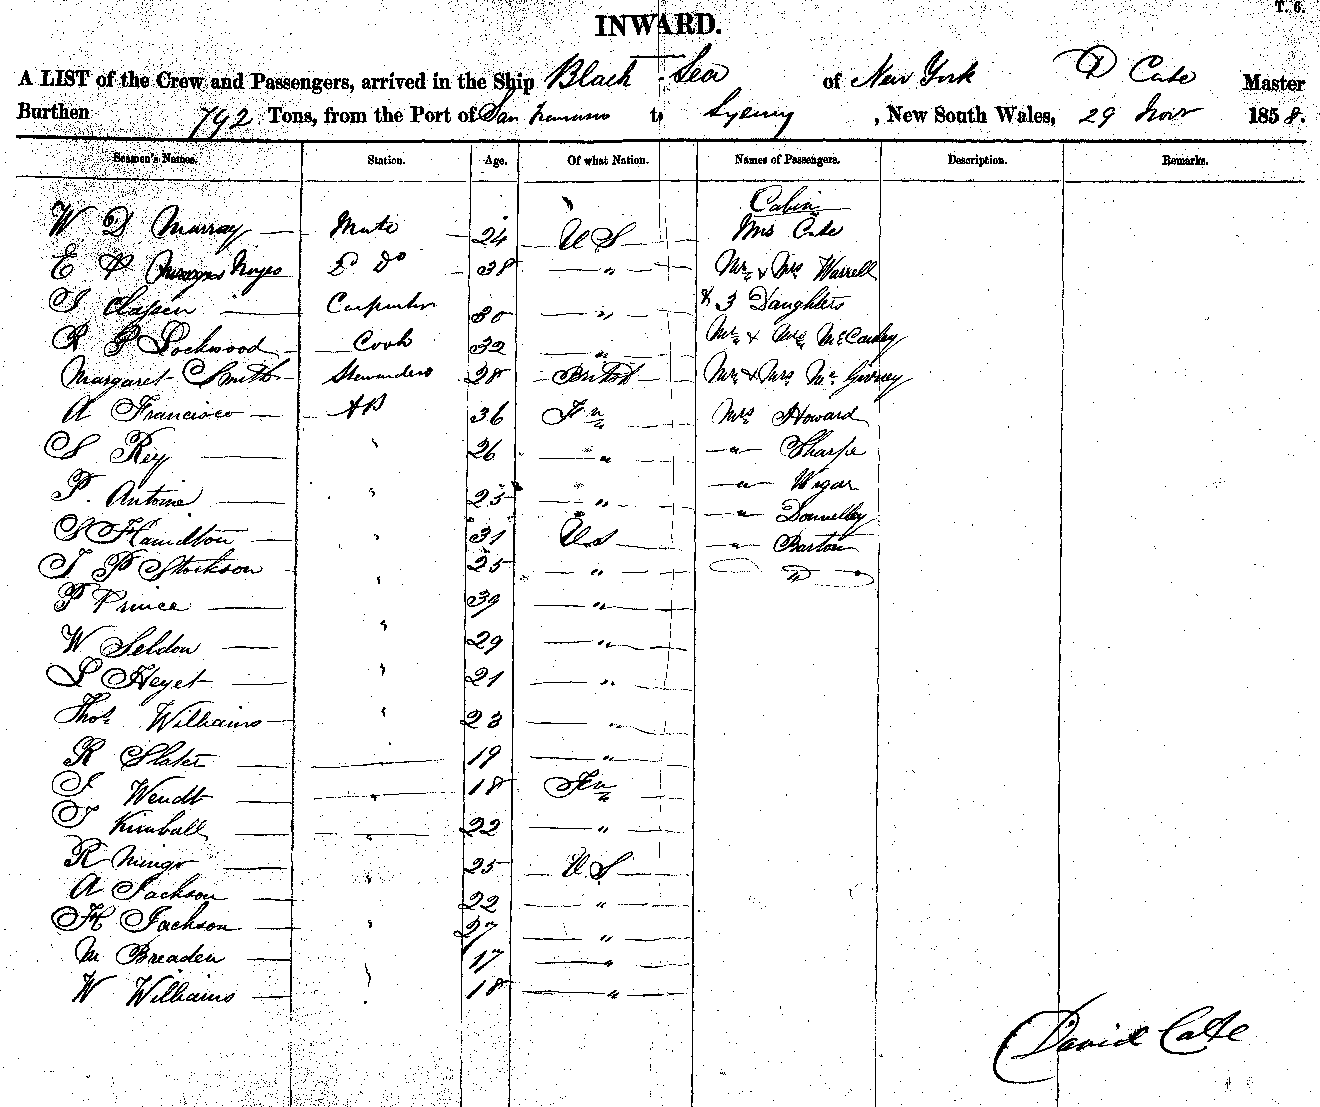 T. 6.
INWARD.
A LIST of the Crew and Passengers, arrived in the Ship Black Sea of New York D Cate Master
Burthen 792 Tons, from the Port of San Francisco to Sydney, New South Wales, 29 Novr 1858.
Seamen's Names. Station. Age. Of what Nation. Names of Passengers. Description. Remarks.
Cabin
W D Murray Mate 24 US Mrs Cate
E P Noyes 2d Do 38 " Mr & Mrs Warrell
Carpenter 30 " & 3 Daughters
R P Lockwood Cook 32 " Mr & Mrs McCauley
Margaret Smith Stewardess 28 British Mr & Mrs
A Francisco AB 36 Fn Mrs Howard
S Rey " 26 " " Sharpe
P. Antoine " 25 " " Wigar
S Hamilton " 31 US " Donnelley
J P Stockson " 25 " " Barton
P Prince " 39 "
W Seldon " 29 "
S Heyet " 21 "
Thos Williams " 23 "
R Slater 19 "
J Wendt " 18 Fn
J Kimball " 22 "
R Mingo " 25 US
A Jackson " 22 "
H Jackson " 27 "
M Breaden 17 "
W Williams " 18 "
David Cate